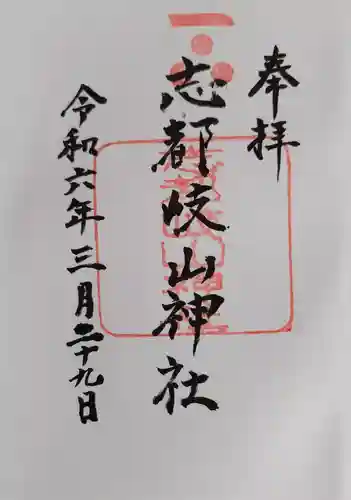 奉拝
志都岐山神社
令和六年三月二十九日